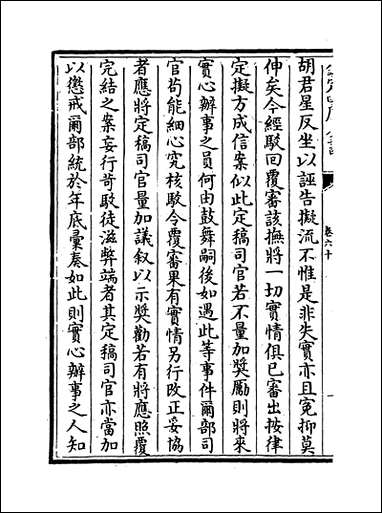 欽定四庫全書
卷六十
胡君星反坐以誣告擬流不惟是非失實亦且寃抑莫
伸矣今經駁回覆審該撫將一切實情俱已審出按律
定擬方成信案似此定稿司官若不量加奬勵則將來
實心辦事之員何由鼓舞嗣後如遇此等事件爾部司
官苟能細心究核駁令覆審果有實情另行改正妥協
者應將定稿司官量加議叙以示奬勸若有將應照覆
完結之案妄行苛駁徒滋弊端者其定稿司官亦當加
以懲戒爾部統於年底彙奏如此則實心辦事之人知